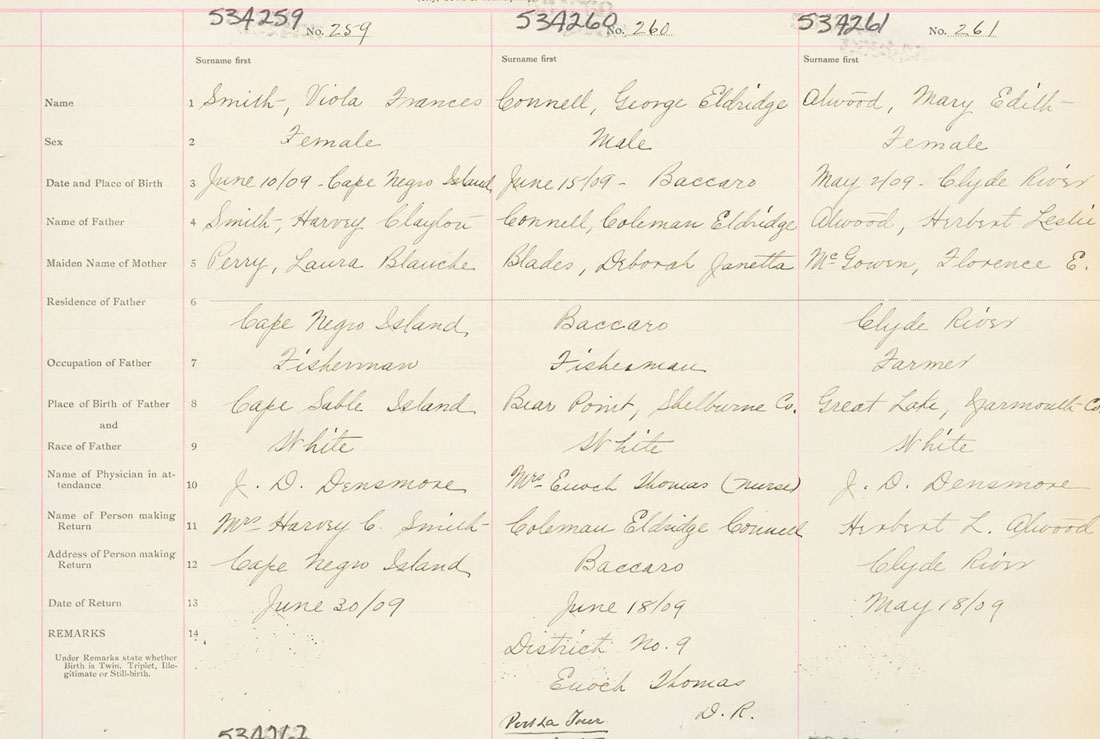 534259 No. 259 534260 No. 260 534261 No. 261
Surname first Surname first Surname first
Name 1 Smith, Viola Frances Connell, George Eldridge Atwood, Mary Edith
Sex 2 Female Male Female
Date and Place of Birth 3 June 10/09 - Cape Negro Island June 15/09 - Baccaro May 2/09 - Clyde River
Name of Father 4 Smith, Harvey Clayton Connell, Coleman Eldridge Atwood, Herbert Leslie
Maiden Name of Mother 5 Perry, Laura Blanche Blades, Deborah Janetta McGowen, Florence E.
Residence of Father 6
Cape Negro Island Baccaro Clyde River
Occupation of Father 7 Fisherman Fisherman Farmer
Place of Birth of Father 8 Cape Sable Island Bear Point, Shelburne Co. Great Lake, Yarmouth Co.
and
Race of Father 9 White White White
Name of Physician in at-
tendance 10 J. D. Densmore Mrs Enoch Thomas (nurse) J. D. Densmore
Name of Person making
Return 11 Mrs Harvey C. Smith Coleman Eldridge Connell Herbert L. Atwood
Address of Person making
Return 12 Cape Negro Island Baccaro Clyde River
Date of Return 13 June 30/09 June 18/09 May 18/09
REMARKS 14 District No. 9
Under Remarks state whether
Birth is Twin, Triplet, Ille-
gitimate or Still-birth.
Enoch Thomas
Port La Tour D. R.
534262